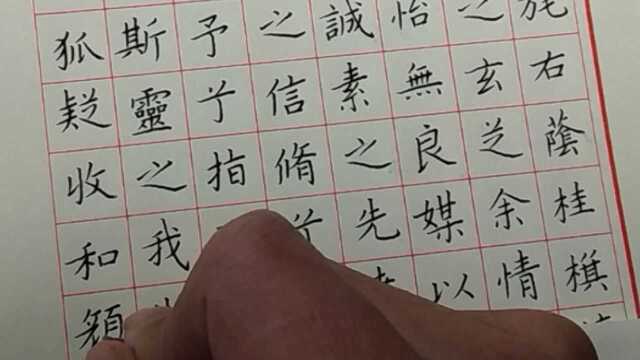 旄右蔭桂旗
之玄芝余情
怡無良媒以
誠素之先
之信脩兮
予兮指
斯靈之我
狐疑收和顏